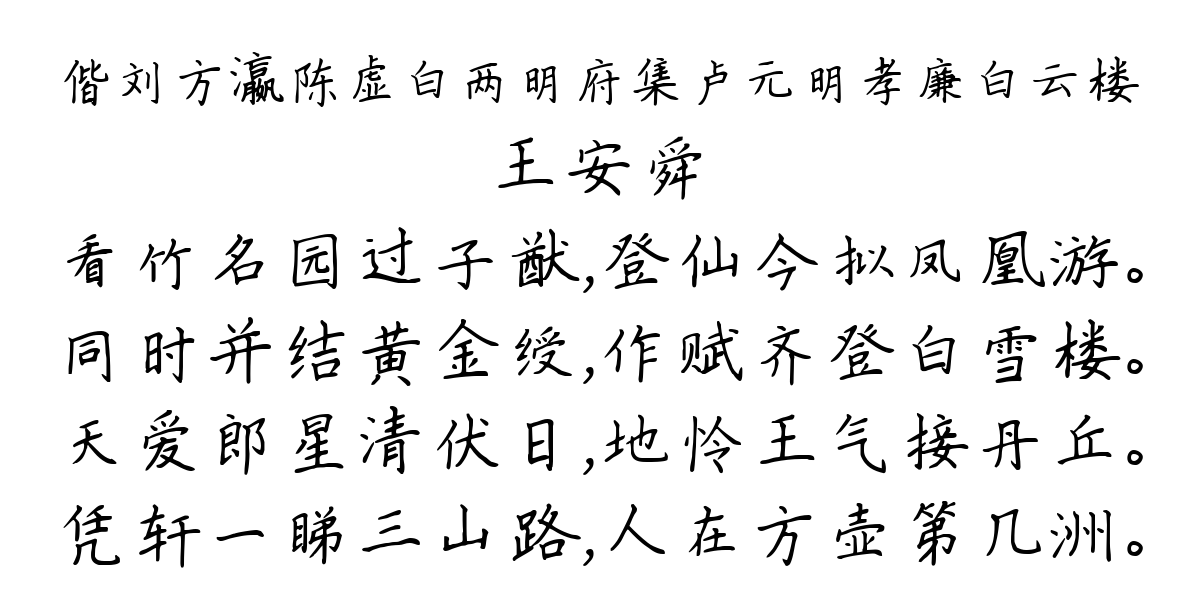 偕刘方瀛陈虚白两明府集卢元明孝廉白云楼
王安舜
看竹名园过子猷,登仙今拟凤凰游。
同时并结黄金绶,作赋齐登白雪楼。
天爱郎星清伏日,地怜王气接丹丘。
凭轩一睇三山路,人在方壶第几洲。